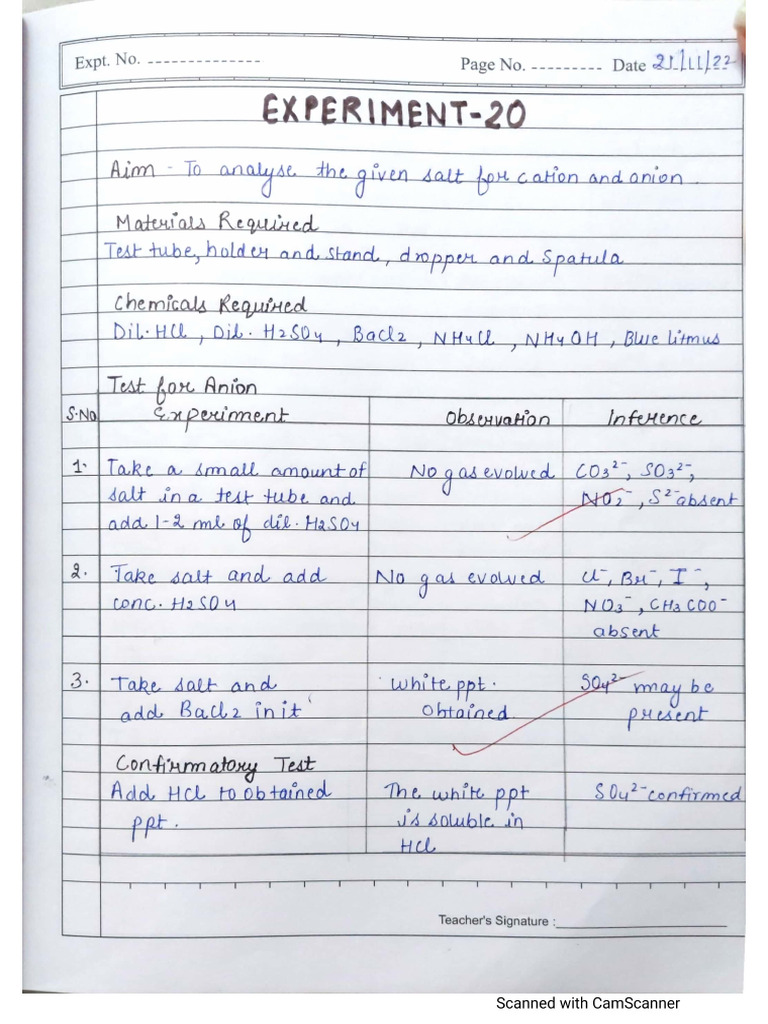 Expt. No. -------------- Page No. --------- Date 21/11/22
EXPERIMENT-20
Aim - To analyse the given salt for cation and anion.
Materials Required
Test tube, holder and stand, dropper and Spatula
Chemicals Required
Dil. HCl, Dil. H2SO4, BaCl2, NH4Cl, NH4OH, Blue litmus
Test for Anion
S.No Experiment Observation Inference
1. Take a small amount of No gas evolved CO3²⁻, SO3²⁻,
salt in a test tube and NO2⁻, S²⁻ absent
add 1-2 ml of dil. H2SO4
2. Take salt and add No gas evolved Cl⁻, Br⁻, I⁻,
conc. H2SO4 NO3⁻, CH3COO⁻
absent
3. Take salt and White ppt. SO4²⁻ may be
add BaCl2 in it obtained present
Confirmatory Test
Add HCl to obtained The white ppt SO4²⁻ confirmed
ppt. is soluble in
HCl
Teacher's Signature :
Scanned with CamScanner